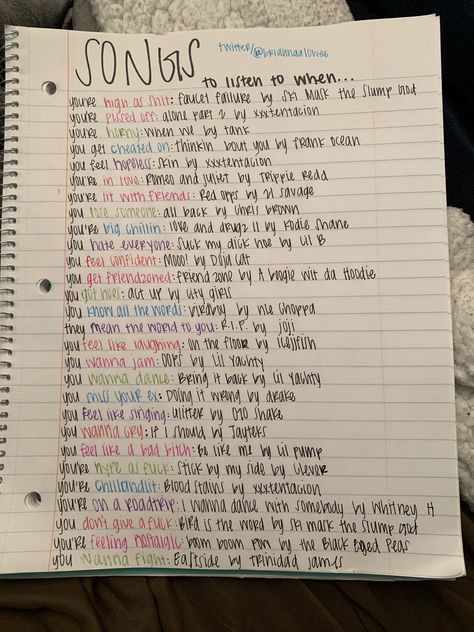 SONGS twitter/@briannaalowee
to listen to when...
you're high as shit: faucet failure by ski mask the slump god
you're pissed off: alone part 3 by xxxtentacion
you're horny: when we by tank
you get cheated on: thinkin bout you by frank ocean
you feel hopeless: skin by xxxtentacion
you're in love: romeo and juliet by trippie redd
you're lit with friends: Red opps by 21 savage
you lose someone: all back by chris brown
you're big chillin: love and drugz II by kodie shane
you hate everyone: suck my dick hoe by Lil B
you feel confident: Mooo! by Doja cat
you get friendzoned: friend zone by A boogie wit da Hoodie
you got hoes: act up by city girls
you know all the words: birdboy by nle choppa
they mean the world to you: R.I.P. by joji
you feel like laughing: on the floor by icejjfish
you wanna jam: OOPS by Lil Yachty
you wanna dance: Bring it back by Lil Yachty
you miss your ex: Doing it wrong by drake
you feel like singing: glitter by 070 shake
you wanna cry: if i should by Jayteks
you feel like a bad bitch: Be like me by lil pump
you're hype as fuck: Stick by my side by clever
you're chillandlit: Blood stains by xxxtentacion
you're on a roadtrip: I wanna dance with somebody by Whitney H
you don't give a fuck: Bird is the word by ski mask the slump god
you're feeling nostalgic: boom boom pow by the Black Eyed Peas
you wanna fight: Eastside by trinidad james